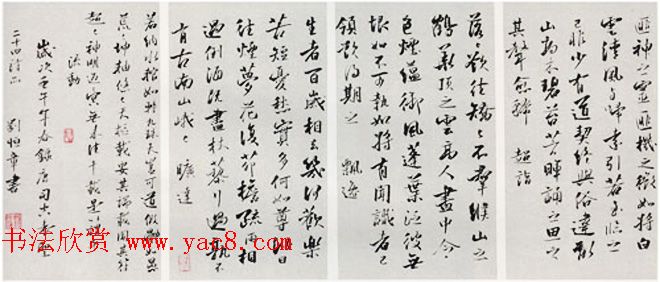 匪神之靈匪機之微如將白
雲清風與歸遠引若至臨之
已非少有道契終與俗違亂
山高木碧苔芳暉誦之思之
其聲愈稀 超詣
落〻欲往矯〻不羣緱山之
鶴華頂之雲高人畫中令
色絪縕御風蓬葉泛彼無
垠如不可執如將有聞識者已
領欲得期之 飄逸
生者百歲相去幾何歡樂
苦短憂愁實多何如尊酒日
往煙蘿花復茅檐疏雨相
過倒酒既盡杖藜行過孰不
有古南山峨〻 曠達
若納水輨如轉丸珠夫豈可道假體如愚
荒〻坤軸悠〻天樞載要其端載聞其符
超〻神明返〻冥無來往千載是之謂乎
流動
歲次壬午年春錄唐司空圖
二十四詩品 劉恒章書
书法欣赏 www.yac8.com